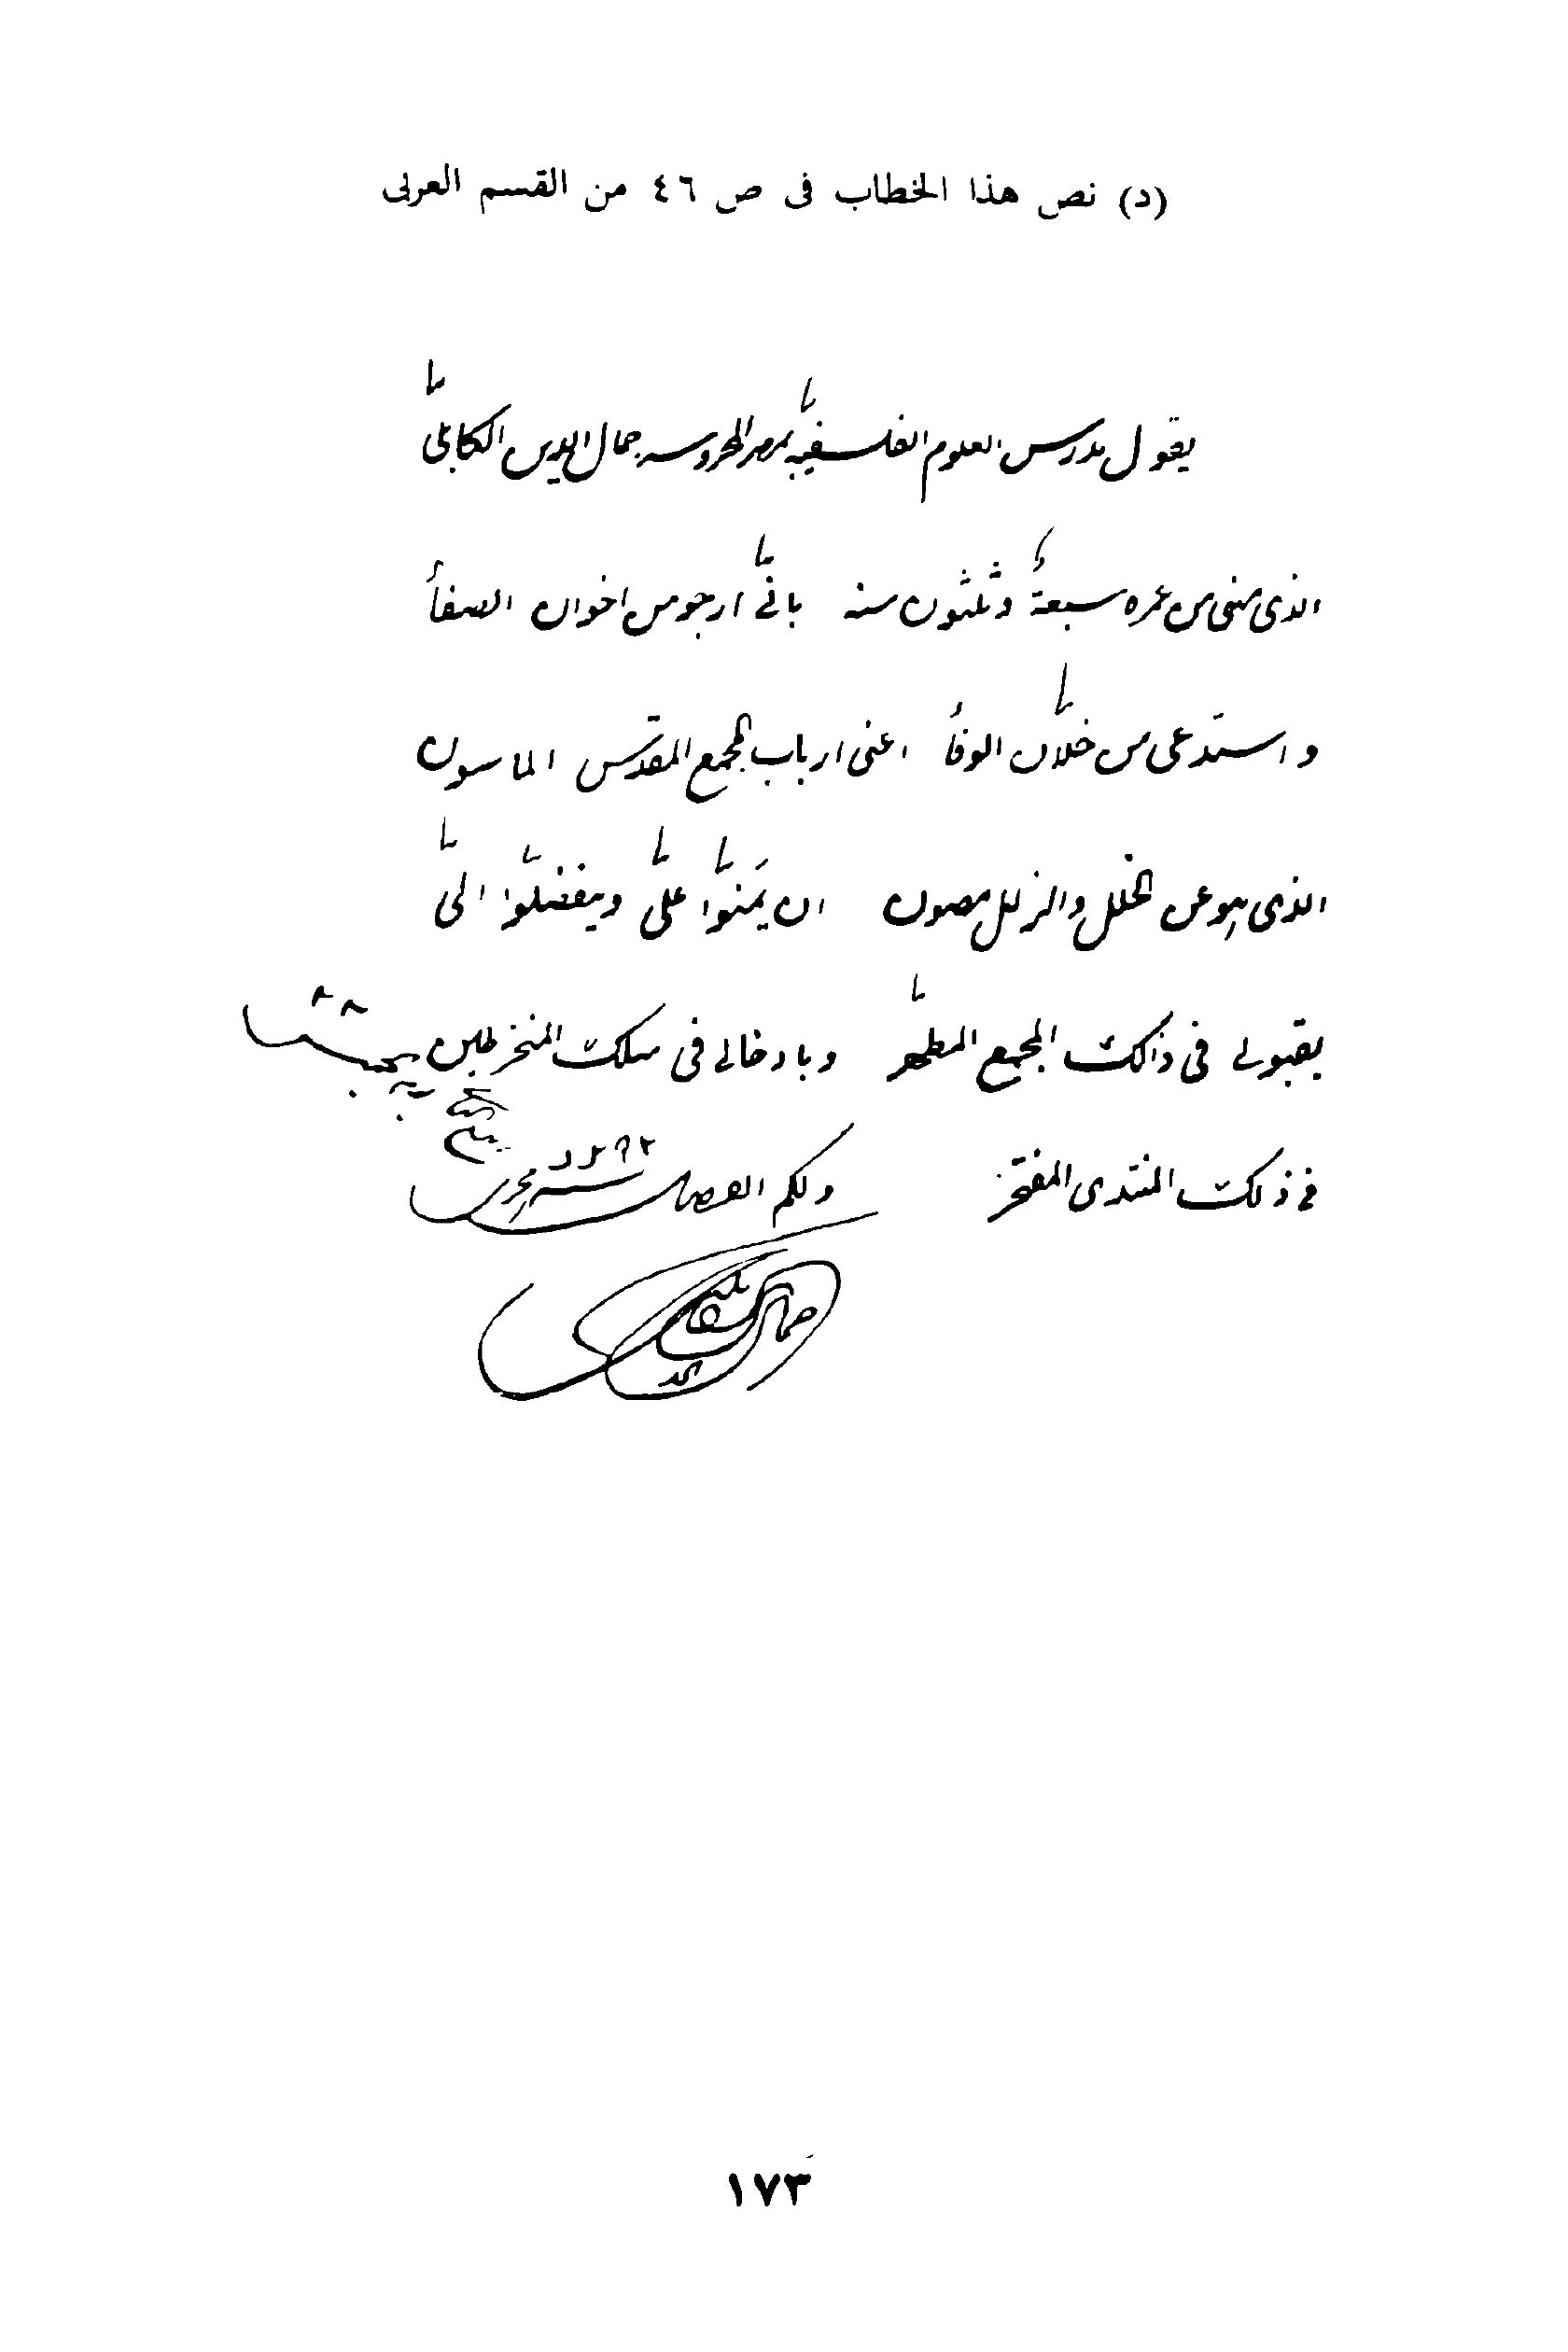 (د) نص هذا الخطاب فى ص ٤٦ من القسم العربى
يقول مدرس العلوم الفلسفيه بمصر المحروسه جمال الدين الكابلى
الذى مضى من عمره سبعةٌ وثلثون سنه بانى ارجو من اخوان الصفأ
واستدعى من خلان الوفأ اعنى ارباب المجمع المقدس الماسون
الذى هو عن الخلل والزلل مصون ان يَمنّوا علىّ ويتفضلوا الىّ
بقبولى فى ذالك المجمع المطهر وبادخالى فى سلك المنخرطين
فى ذلك المنتدى المفتخر ولكم الفضل
١٧٣